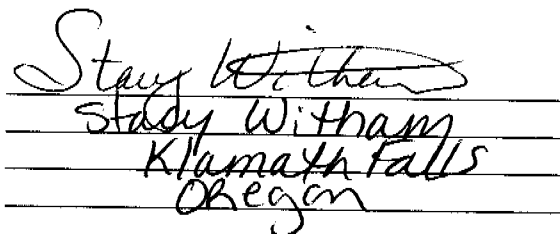 Stacy Witham
Stacy Witham
Klamath Falls
Oregon